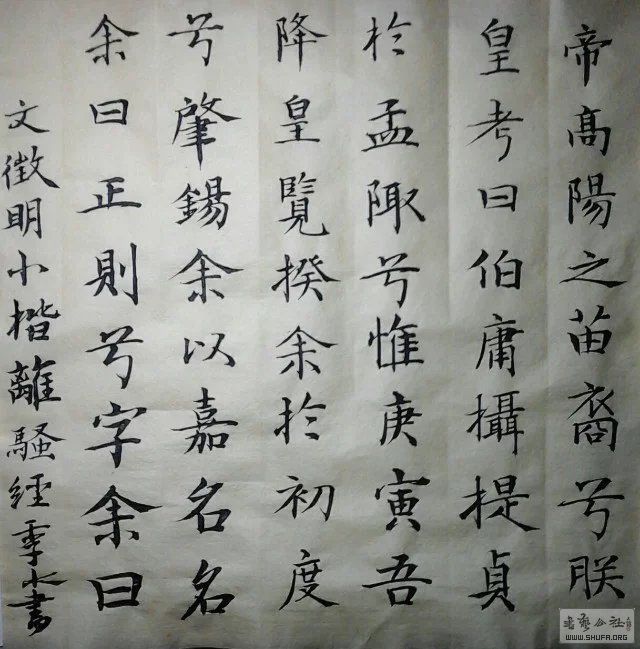 帝高陽之苗裔兮朕
皇考曰伯庸攝提貞
於孟陬兮惟庚寅吾
降皇覽揆余於初度
兮肇錫余以嘉名名
余曰正則兮字余曰
文徵明小楷離騷經季水書
书艺公社
WWW.SHUFA.ORG